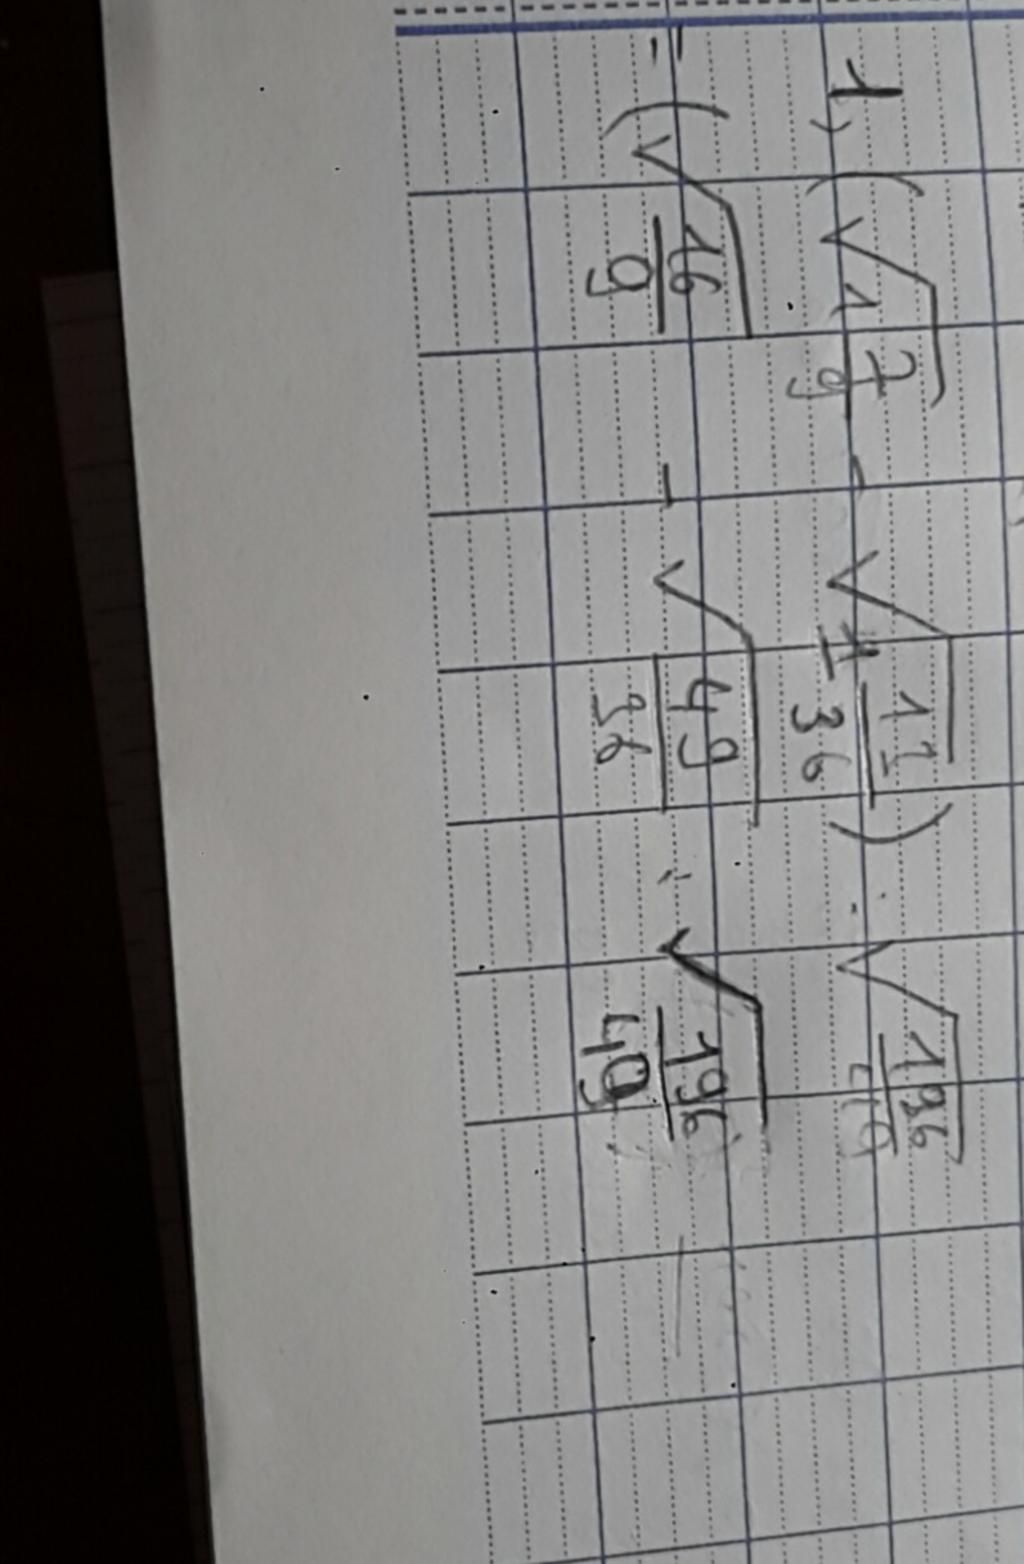 1) (√1 7/9 - √1 11/36) : √196/49
= (√16/9 - √49/36 : √196/49